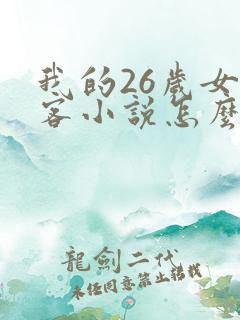 我的26歲女
客小説怎麽
龍劍二代
未經同意禁止轉載